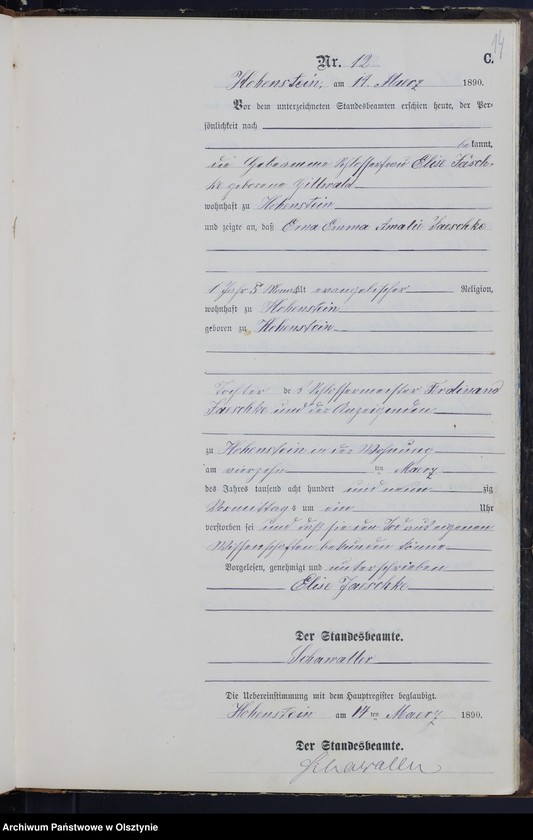 14
Nr. 12 C.
Hohenstein, am 14. Maerz 1890.
Vor dem unterzeichneten Standesbeamten erschien heute, der Per-
sönlichkeit nach
bekannt,
die Schlosserfrau Elise Jäsch-
ke geborene
wohnhaft zu Hohenstein
und zeigte an, daß Erna Emma Amalie Jaeschke
1 Jahr 5 Monat alt evangelischer Religion,
wohnhaft zu Hohenstein
geboren zu Hohenstein
Tochter des Schlossermeister Ferdinand
Jaeschke und der Anzeigenden
zu Hohenstein in der Wohnung
am vierzehn ten Maerz
des Jahres tausend acht hundert und neun zig
Vormittags um ein Uhr
verstorben sei und daß sie von dem Tod aus eigener
Wissenschaft
Vorgelesen, genehmigt und unterschrieben
Elise Jaeschke
Der Standesbeamte.
Schawaller
Die Uebereinstimmung mit dem Hauptregister beglaubigt.
Hohenstein am 14 ten Maerz 1890.
Der Standesbeamte.
Schawaller
Archiwum Państwowe w Olsztynie